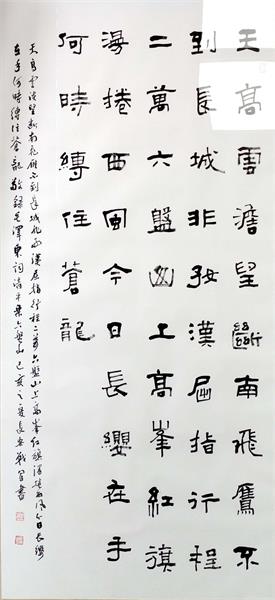 天高雲澹望斷南飛鴈不
到長城非好漢屈指行程
二萬六盤山上高峯紅旗
漫捲西風今日長纓在手
何時縛住蒼龍
天高雲淡望斷南飛雁不到長城非好漢屈指行程二萬六盤山上高峯紅旗漫捲西風今日長纓
在手何時縛住蒼龍敬錄毛澤東詞清平樂六盤山己亥之夏長安戰軍書